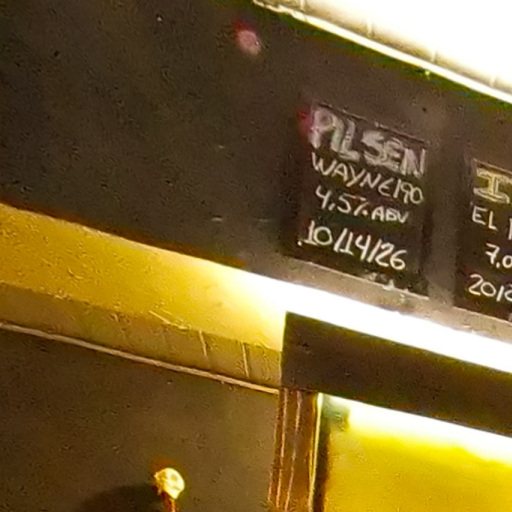 PILSEN
WAYNE190
4,5% ABV
10/14/26
I
EL
7.0